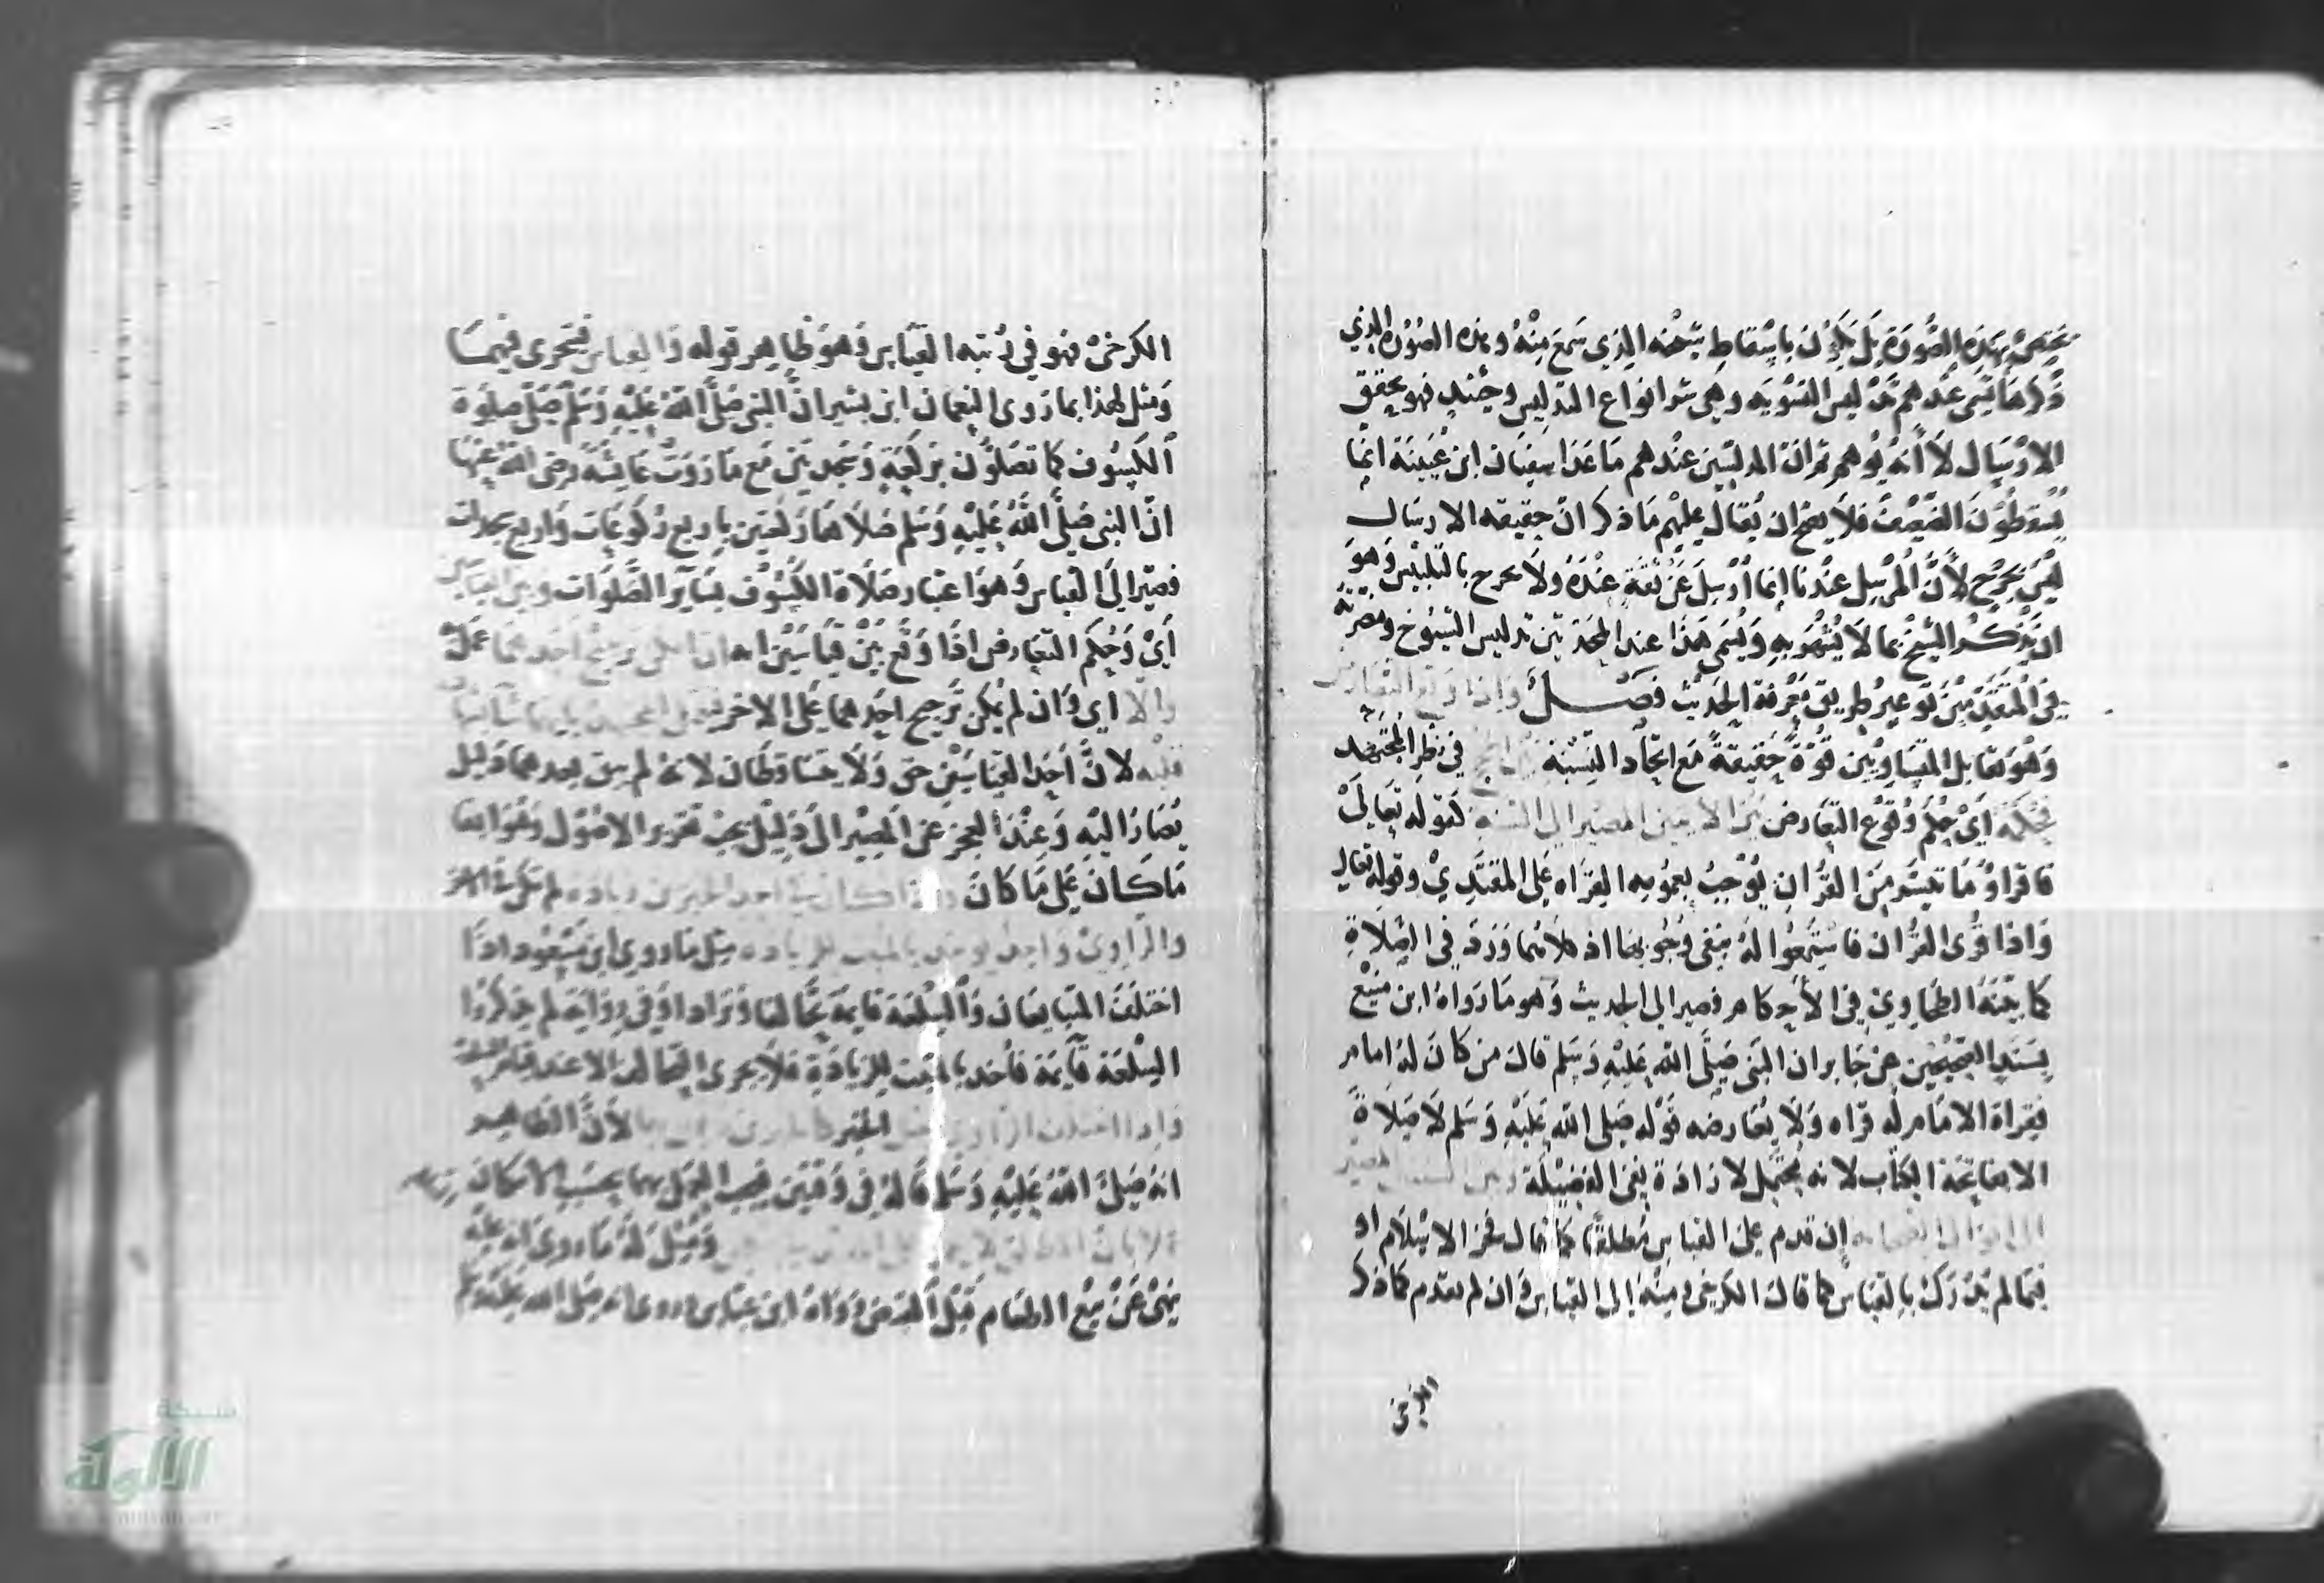 يختص بهذه الصورة بل يكون باسقاط شيخه الذي سمع منه وهذه الصورة الذي
ذكرها تسمى عندهم تدليس التسوية وهي شر انواع التدليس وحينئذ فهو يحقق
الارسال لا أنه يوهم ثم ان المدلسين عندهم ماعدا سفيان ابن عيينة انما
يسقطون الضعيف فلا يصح ان يقال عليهم ماذكر ان حقيقه الارسال
ليس بجرح لأن المرسل عندنا إنما أرسل عن ثقة عنده ولا يجرح بالتلبيس وهو
ان يذكر الشيخ بما لا يشهر به ويسمى هذا عند المحدثين تدليس الشيوخ ومضرته
في المتقدمين توعير طريق معرفة الحديث فصل واذا وقع التعارض
وهو تقابل المتساويين قوة حقيقة مع اتحاد النسبة في نظر المجتهد
فحكمه اي حكم وقوع التعارض بين الايتين المصير الى السنة كقوله تعالى
فاقراؤ ما تيسر من القران يوجب بعمومه القراه على المقتدي وقوله تعالى
واذا قرى القران فاستمعوا له ينفي وجوبها اذ كلاهما ورد في الصلاة
كما بينه الطحاوي في الأحكام فصير الى الحديث وهو ما رواه ابن منيع
بسند الصحيحين عن جابر ان النبي صلى الله عليه وسلم قال من كان له امام
فقراة الامام له قراه ولا يعارضه قوله صلى الله عليه وسلم لا صلاة
الا بفاتحة الكتاب لانه يحتمل لارادة نفي الفضيلة وبين السنتين المصير
الى اقوال الصحابه إن قدم على القياس مطلقا كما قال فخر الاسلام او
فيما لم يدرك بالقياس كما قال الكرخي ومنه إلى القياس وان لم يقدم كما ذكر
الكرخي
الكرخي فهو في رتبه القياس وهو ظاهر قوله والقياس فيتحرى فيهما
ومثل لهذا بما روى النعمان ابن بشير ان النبي صلى الله عليه وسلم صلى صلوة
الكسوف كما تصلون بركعة وسجدتين مع ما روت عائشة رضى الله عنها
ان النبي صلى الله عليه وسلم صلاها ركعتين باربع ركوعات واربع سجدات
فصير الى القياس وهو اعتبار صلاة الكسوف بسائر الصلوات وبين القياسين
أي وحكم التعارض اذا وقع بين قياسين انه ان امكن ترجيح احدهما عمل به
والا اي وان لم يكن ترجيح احدهما على الاخر
قلبه لان أحد القياسين حق ولا يتساقطان لانه لم يبق بعدهما دليل
يصار اليه وعند العجز عن المصير الى دليل يجب تقرير الاصول وهو ابقا
ما كان على ما كان واذا كان في احد الخبرين زيادة لم تكن في الاخر
والراوي واحد يوخذ بالمثبت للزياده مثل ما روي ابن مسعود اذا
اختلف المتبايعان والسلعة قايمة تحالفا وترادا وفي رواية لم يذكر
السلعة قايمة فأخذ بالمثبت للزيادة فلا يجرى التحالف الا عند قيام السلعة
واذا اختلف الراوي الخبر لأن الظاهر
انه صلى الله عليه وسلم قاله في وقتين فيجب العمل بهما بحسب الامكان
ومثل له ما روي انه عليه
نهى عن بيع الطعام قبل القبض رواه ابن عباس وروى انه صلى الله عليه وسلم
شبكة
الألوكة